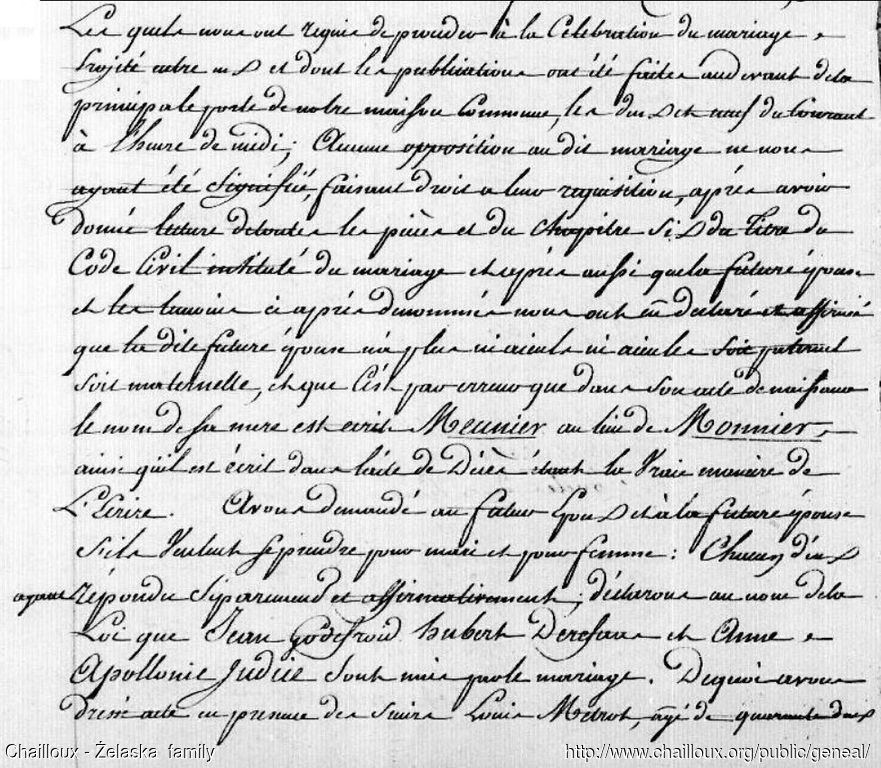 Les quels nous ont requis de proceder à la Célébration du mariage
Projeté entre eux et dont les publications ont été faites au devant de la
principale porte de notre maison Commune, les deux et neuf du Courant
à l'heure de midi; Aucune opposition au dit mariage ne nous
ayant été Signifié, faisant droit a leur requisition, après avoir
donné lecture de toutes les pièces et du chapitre Six du Titre du
Code Civil intitulé du mariage et après aussi que la future épouse
et les temoins ci après denommés nous ont declaré et affirmé
que la dite future épouse n'a plus ni aieuls ni aieules soit paternel
soit maternelle, et que C'est par erreur que dans son acte de naissance
le nom de sa mere est ecrit Meunier au lieu de Monnier,
ainsi qu'il est écrit dans l'acte de Décès étant la Vraie maniere de
L'Ecrire. Avons demandé au futur Epoux et à la future épouse
S'ils Veulent se prendre pour mari et pour femme: Chacun d'eux
ayant répondu Séparement et affirmativement; déclarons au nom de la
Loi que Jean Godefroid hubert Derefaus et Anne
Apollonie Judice sont unis par le mariage. De quoi avons
dressé acte en presence des Sieurs Louis Metrot, agé de quarante deux
Chailloux - Żelaska family
http://www.chailloux.org/public/geneal/